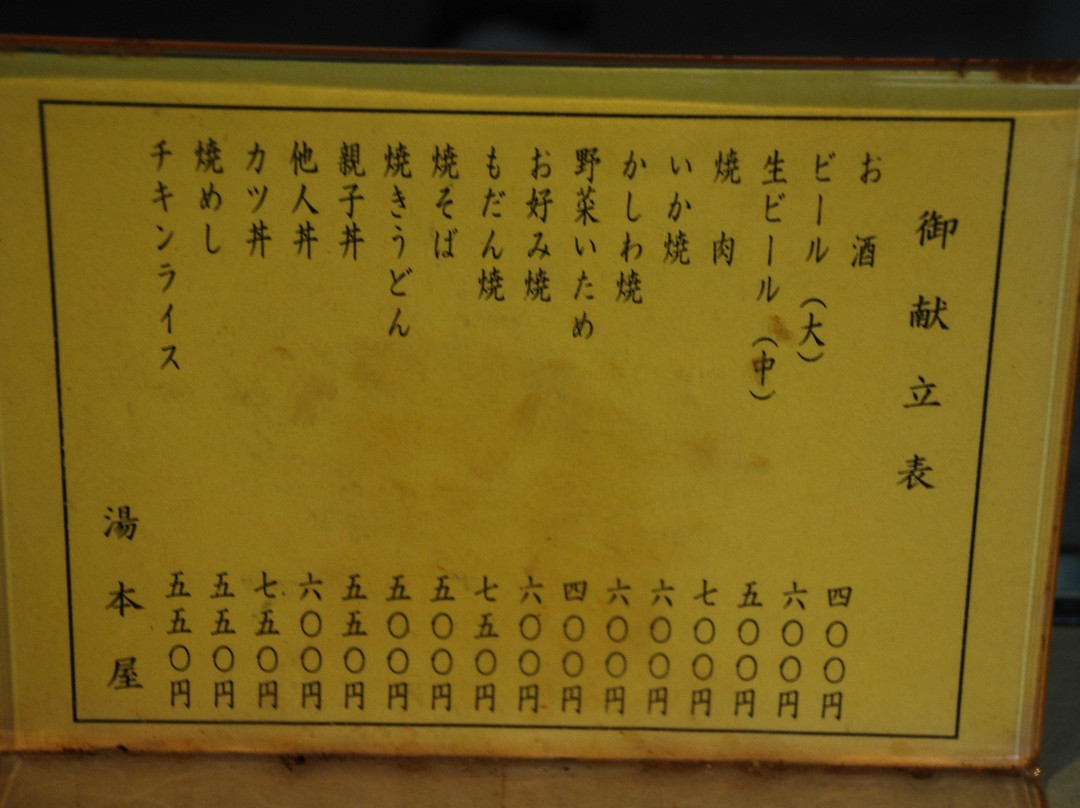 御献立表
お酒 四〇〇円
ビール(大) 六〇〇円
生ビール(中) 五〇〇円
焼肉 七〇〇円
いか焼 六〇〇円
かしわ焼 六〇〇円
野菜いため 四〇〇円
お好み焼 六〇〇円
もだん焼 七五〇円
焼そば 五〇〇円
焼きうどん 五〇〇円
親子丼 五五〇円
他人丼 六〇〇円
カツ丼 七五〇円
焼めし 五五〇円
チキンライス 五五〇円
湯本屋